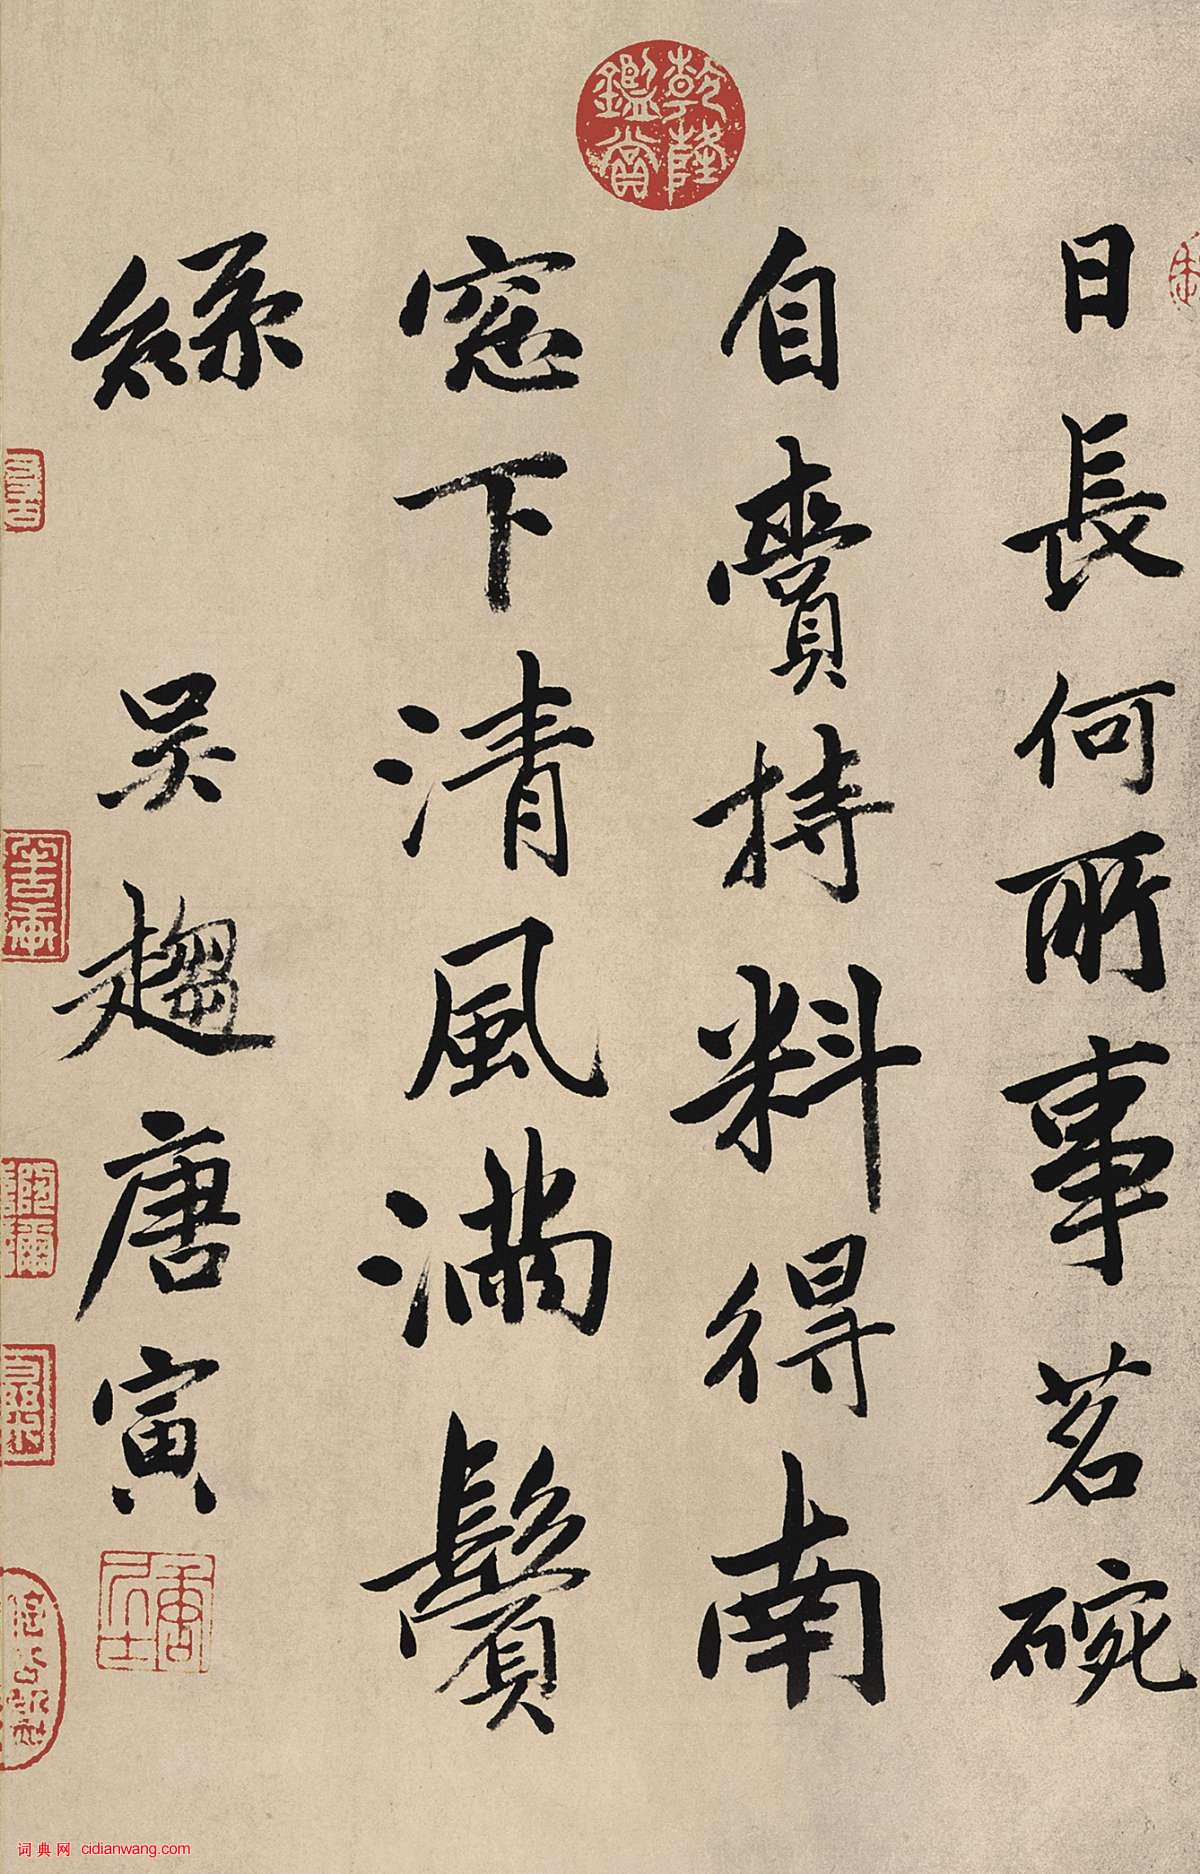 乾隆鑑賞
日長何所事茗碗
自賚持料得南
窓下清風滿鬢
絲 吳趨唐寅
词典网 cidianwang.com